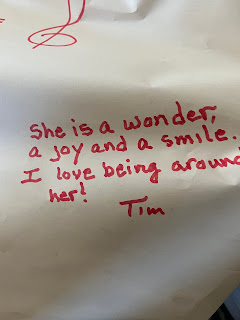 She is a wonder,
a joy and a smile.
I love being around
her!
Tim